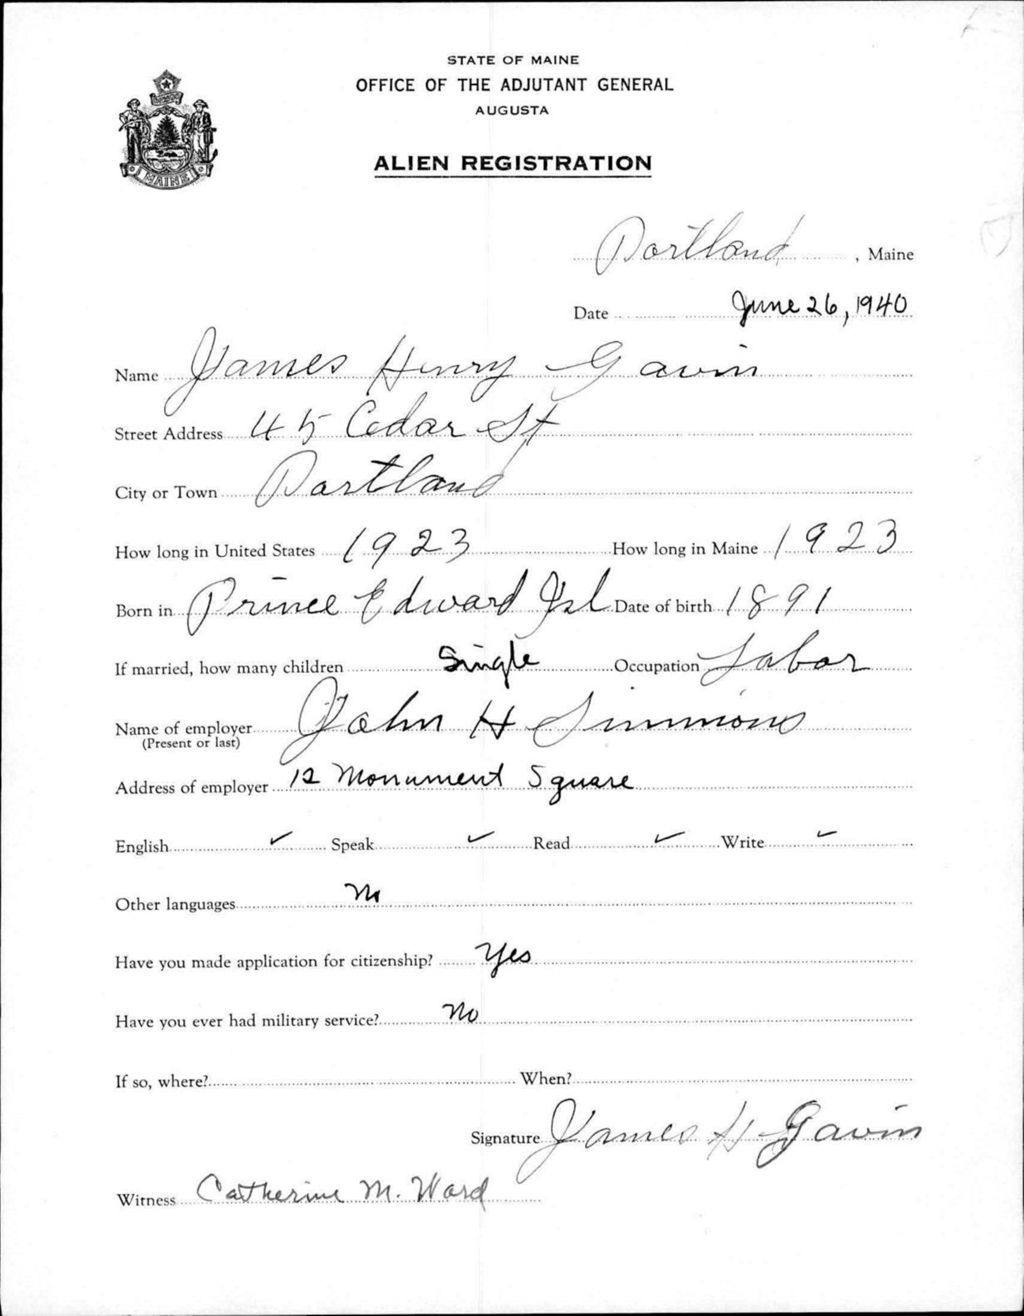 STATE OF MAINE
OFFICE OF THE ADJUTANT GENERAL
AUGUSTA
ALIEN REGISTRATION
MAINE
Portland, Maine
Date June 26, 1940
Name James Henry Gavin
Street Address 45 Cedar St
City or Town Portland
How long in United States 1923 How long in Maine 1923
Born in Prince Edward Isl Date of birth 1891
If married, how many children Single Occupation Labor
Name of employer John H Simmons
(Present or last)
Address of employer 12 Monument Square
English ✓ Speak ✓ Read ✓ Write ✓
Other languages No
Have you made application for citizenship? Yes
Have you ever had military service? No
If so, where? When?
Signature James H Gavin
Witness Catherine M. Ward